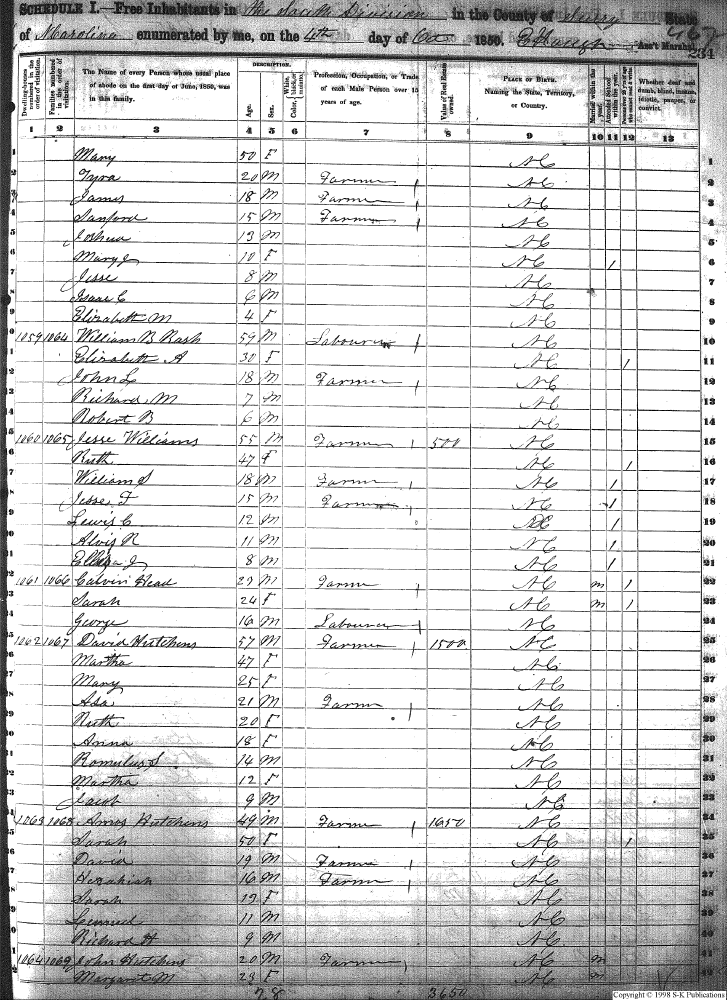 SCHEDULE I.—Free Inhabitants in the South Division in the County of Surry State
of N Carolina enumerated by me, on the 4th day of Oct 1850. Ass't Marshal
467
234
DESCRIPTION.
Dwelling-houses numbered in the order of visitation.
Families numbered in the order of visitation.
The Name of every Person whose usual place of abode on the first day of June, 1850, was in this family.
Age.
Sex.
Color, White, black, or mulatto.
Profession, Occupation, or Trade of each Male Person over 15 years of age.
Value of Real Estate owned.
PLACE OF BIRTH. Naming the State, Territory, or Country.
Married within the year.
Attended School within the year.
Persons over 20 y'rs of age who cannot read & write.
Whether deaf and dumb, blind, insane, idiotic, pauper, or convict.
1 2 3 4 5 6 7 8 9 10 11 12 13
1 Mary 50 F NC 1
2 Tyra 20 M Farmer 1 NC 2
3 James 18 M Farmer 1 NC 3
4 Sanford 15 M Farmer 1 NC 4
5 Joshua 13 M NC 5
6 Mary J 10 F NC 1 6
7 Jesse 8 M NC 7
8 Isaac C 6 M NC 8
9 Elizabeth M 4 F NC 9
10 1059 1064 William B Rash 59 M Labourer 1 NC 10
11 Elizabeth A 30 F NC 1 11
12 John L 18 M Farmer 1 NC 12
13 Richard M 7 M NC 13
14 Robert B 6 M NC 14
15 1060 1065 Jesse Williams 55 M Farmer 1 500 NC 15
16 Ruth 47 F NC 1 16
17 William S 18 M Farmer 1 NC 1 17
18 Jesse F 15 M Farmer NC 1 18
19 Lewis C 12 M NC 1 19
20 Alvis R 11 M NC 1 20
21 J 8 M NC 1 21
22 1061 1066 Calvin Head 23 M Farmer 1 NC m 1 22
23 Sarah 24 F NC m 1 23
24 George 16 M Labourer 1 NC 24
25 1062 1067 David Hutchens 57 M Farmer 1 1500 NC 25
26 Martha 47 F NC 26
27 Mary 25 F NC 27
28 Asa 21 M Farmer 1 NC 28
29 Ruth 20 F NC 29
30 Anna 18 F NC 30
31 Romulus S 14 M NC 31
32 Martha 12 F NC 32
33 Jacob 9 M NC 33
34 1063 1068 Amos Hutchens 49 M Farmer 1 1650 NC 34
35 Sarah 50 F NC 1 35
36 David 19 M Farmer 1 NC 36
37 Hezekiah 16 M Farmer 1 NC 37
38 Sarah 13 F NC 38
39 Lemuel 11 M NC 39
40 Richard H 9 M NC 40
41 1064 1069 John Hutchens 20 M Farmer 1 NC m 41
42 Margaret M 23 F NC m 42
28 3650
Copyright © 1998 S-K Publications